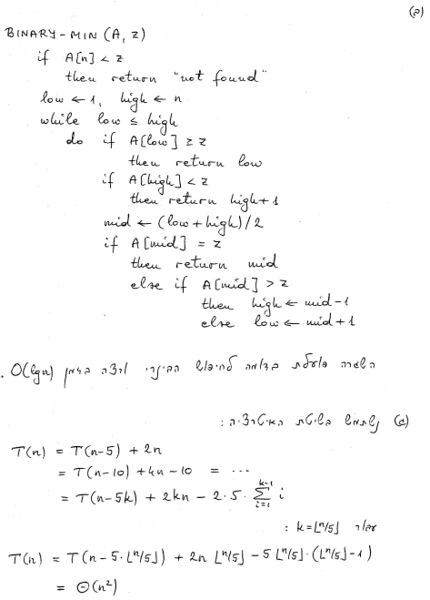 (ב)
BINARY-MIN (A, z)
if A[n] < z
then return "not found"
low ← 1, high ← n
while low ≤ high
do if A[low] ≥ z
then return low
if A[high] < z
then return high+1
mid ← (low + high)/2
if A[mid] = z
then return mid
else if A[mid] > z
then high ← mid-1
else low ← mid+1
השגרה פועלת בדומה לחיפוש הבינרי ורצה בזמן O(lg n).
נשתמש בשיטת האיטרציה:
T(n) = T(n-5) + 2n
= T(n-10) + 4n - 10 = ...
= T(n-5k) + 2kn - 2·5·∑_{i=1}^{k-1} i
k = ⌊n/5⌋ :
T(n) = T(n - 5·⌊n/5⌋) + 2n ⌊n/5⌋ - 5⌊n/5⌋·(⌊n/5⌋-1)
= Θ(n²)